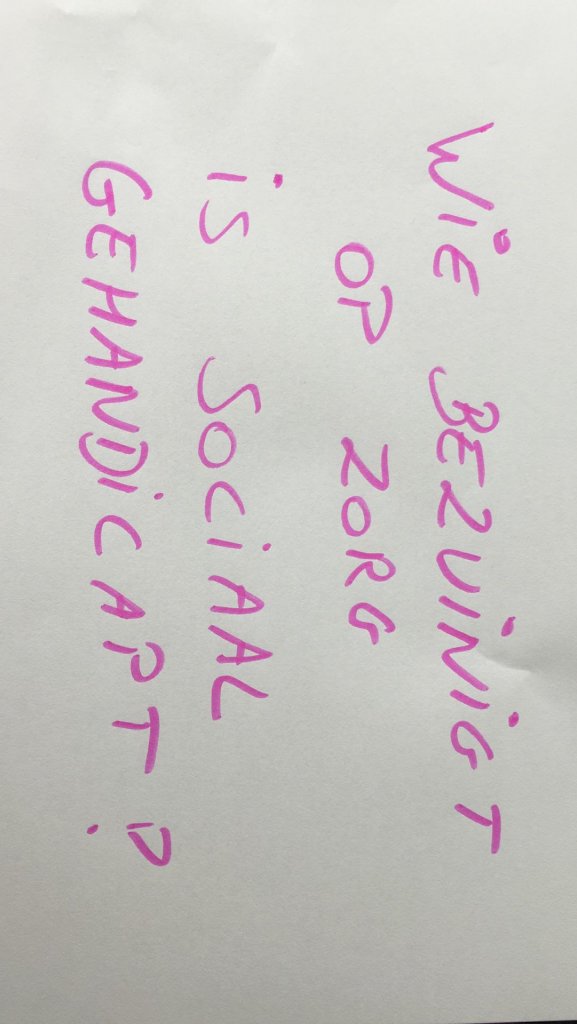 WiE BEZUiNiGT
OP ZORG
iS SOCiAAL
GEHANDiCAPT?